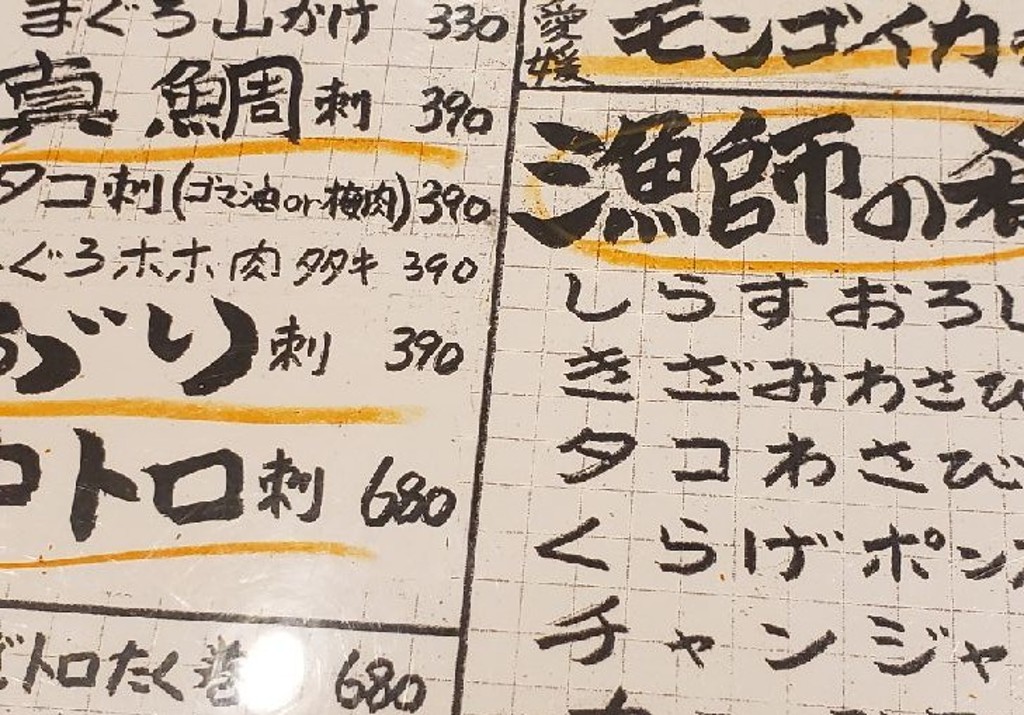 まぐろ山かけ 330
真鯛刺 390
タコ刺(ゴマ油or梅肉) 390
ぐろホホ肉タタキ 390
ぶり刺 390
トロ刺 680
トロたく巻 680
愛媛 モンゴイカ
漁師の肴
しらすおろし
きざみわさび
タコわさび
くらげポン
チャンジャ